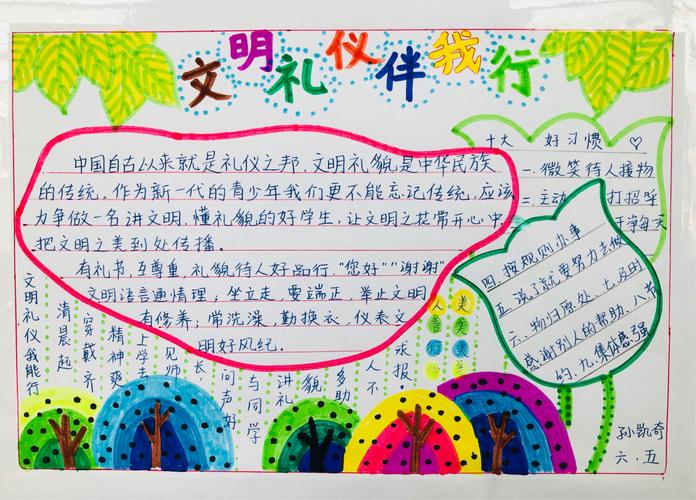 文明礼仪伴我行
中国自古以来就是礼仪之邦,文明礼貌是中华民族
的传统。作为新一代的青少年我们更不能忘记传统,应该
力争做一名讲文明,懂礼貌的好学生,让文明之花常开心中
把文明之美到处传播。
有礼节,互尊重,礼貌待人好品行,"您好""谢谢"
文明语言通情理;坐立走,要端正,举止文明
有修养;常洗澡,勤换衣,仪表文
明好风纪。
十大 好习惯
一.微笑待人接物
二.主动 打招呼
干净每天
四.按规则办事
五.说了就要努力去做
六.物归原处、七.及时
感谢别人的帮助.八.节
约.九.集体感强
文明礼仪我能行
清晨起
穿戴齐
精神爽
上学去
见师长
问声好
与同学
讲礼貌
多助人
不求报。
孙凯奇
六.五